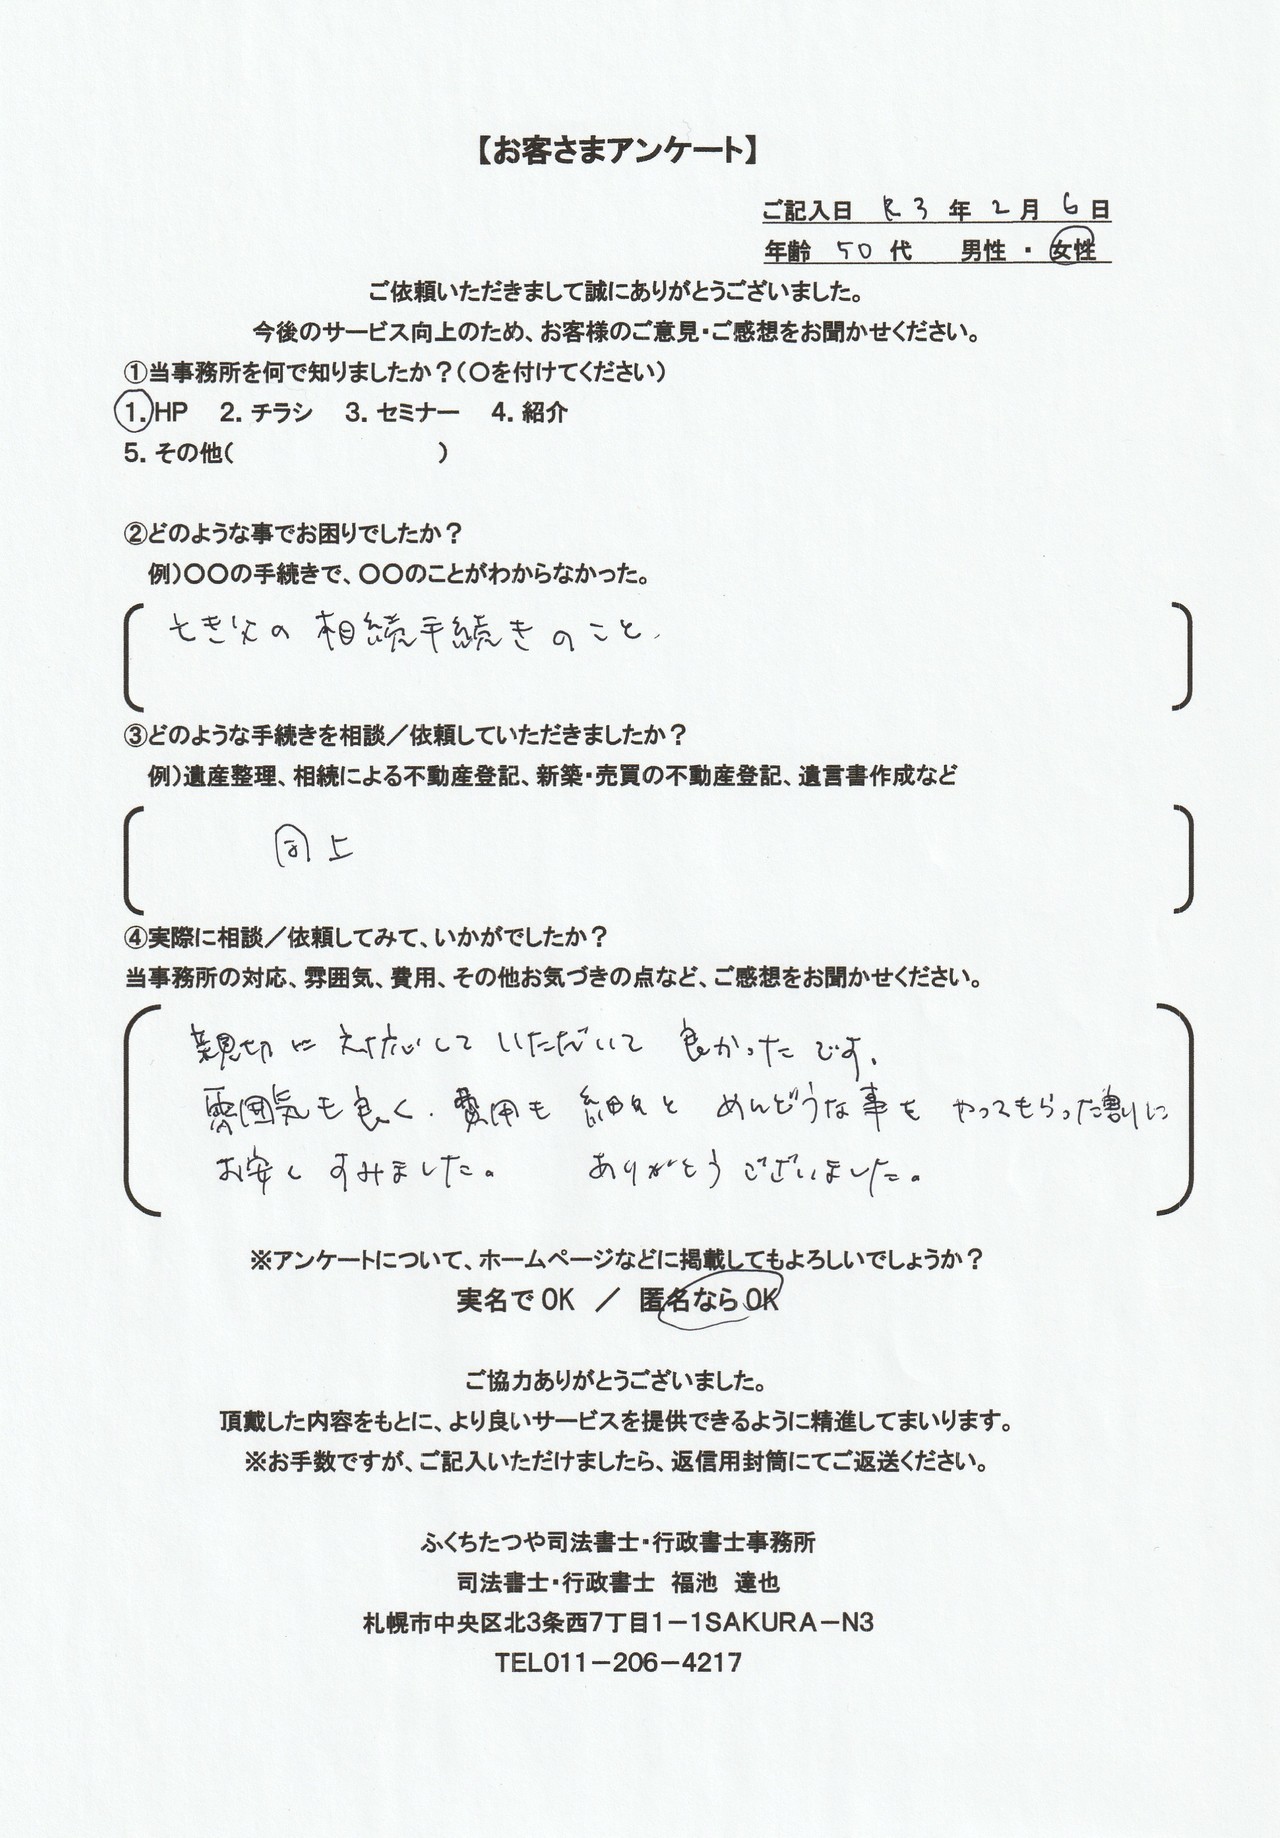 【お客さまアンケート】
ご記入日 R3 年 2 月 6 日
年齢 50 代 男性 ・ 女性
ご依頼いただきまして誠にありがとうございました。
今後のサービス向上のため、お客様のご意見・ご感想をお聞かせください。
①当事務所を何で知りましたか？（○を付けてください）
1. HP 2. チラシ 3. セミナー 4. 紹介
5. その他（ ）
②どのような事でお困りでしたか？
例）○○の手続きで、○○のことがわからなかった。
亡き父の 相続手続きのこと.
③どのような手続きを相談／依頼していただきましたか？
例）遺産整理、相続による不動産登記、新築・売買の不動産登記、遺言書作成など
同上
④実際に相談／依頼してみて、いかがでしたか？
当事務所の対応、雰囲気、費用、その他お気づきの点など、ご感想をお聞かせください。
親切に対応していただいて 良かったです.
雰囲気も良く. 費用も 細々と めんどうな事を やってもらった割に
お安く すみました。 ありがとうございました。
※アンケートについて、ホームページなどに掲載してもよろしいでしょうか？
実名でOK ／ 匿名ならOK
ご協力ありがとうございました。
頂戴した内容をもとに、より良いサービスを提供できるように精進してまいります。
※お手数ですが、ご記入いただけましたら、返信用封筒にてご返送ください。
ふくちたつや司法書士・行政書士事務所
司法書士・行政書士 福池 達也
札幌市中央区北3条西7丁目1－1SAKURA－N3
TEL011－206－4217